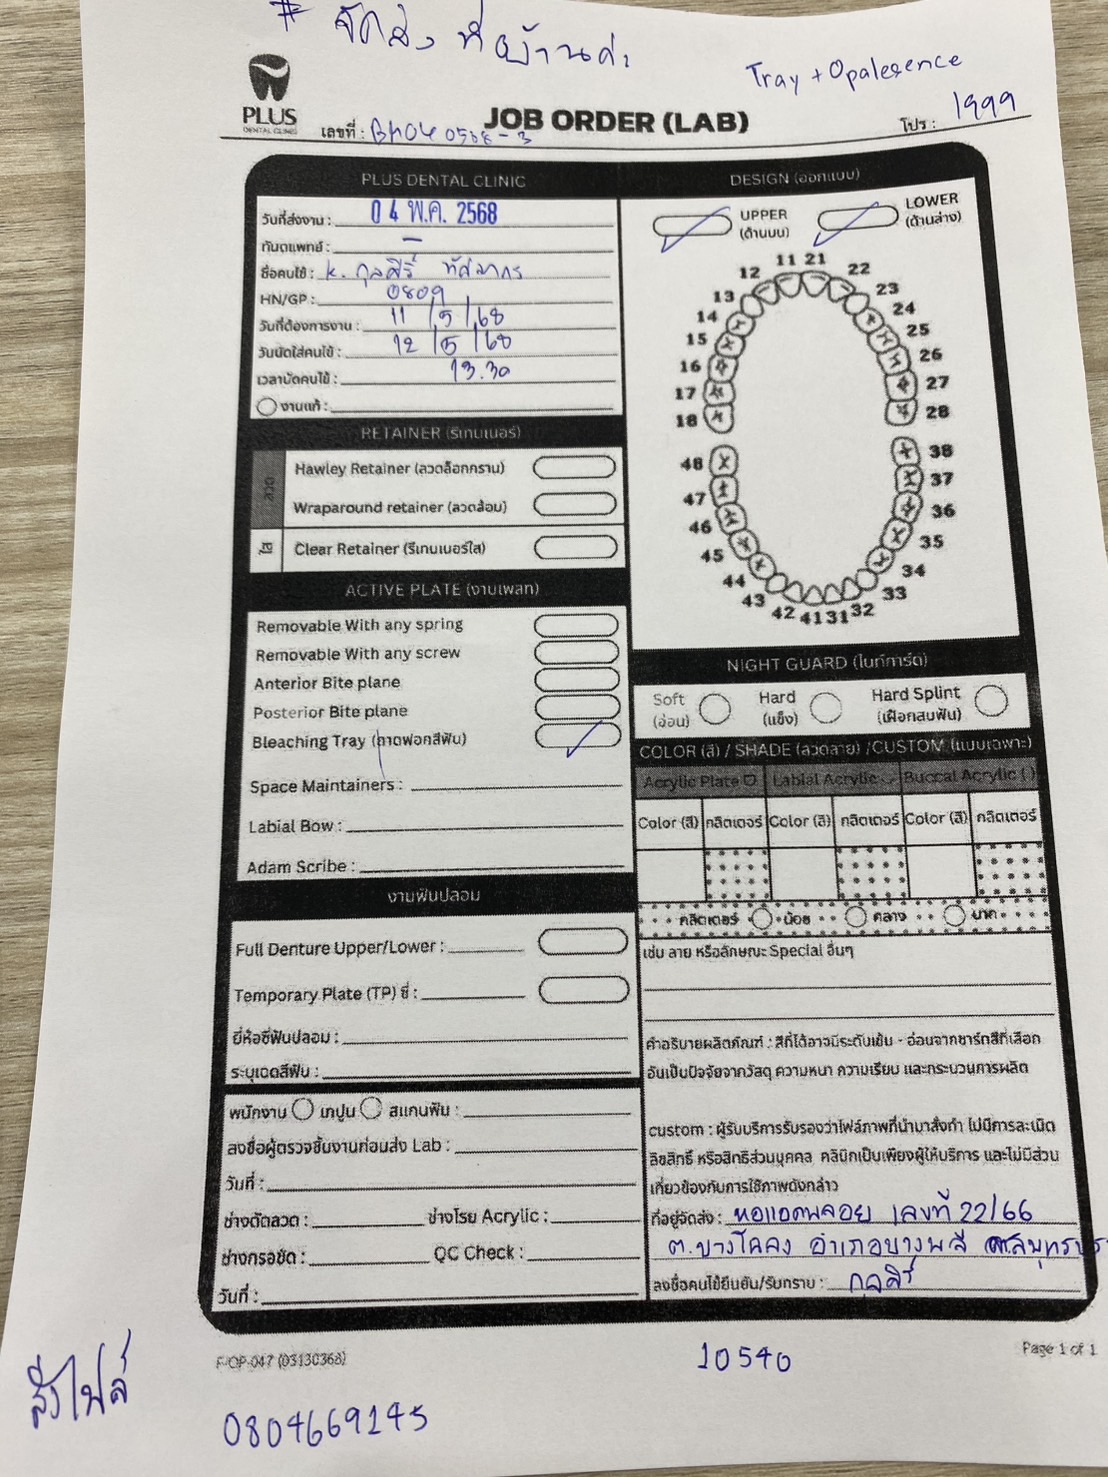 # จัดส่ง ที่บ้านค่ะ
Tray + Opalesence
PLUS
DENTAL CLINIC
เลขที่ :
JOB ORDER (LAB)
โปร : 1999
PLUS DENTAL CLINIC
วันที่ส่งงาน : 04 พ.ค. 2568
ทันตแพทย์ : –
ชื่อคนไข้ : k. กุลศิริ
HN/GP : 0809
วันที่ต้องการงาน : 11 / 5 / 68
วันนัดใส่คนไข้ : 12 / 5 / 68
เวลานัดคนไข้ : 13.30
งานแก้ :
RETAINER (รีเทนเนอร์)
ลวด
Hawley Retainer (ลวดล็อกกราม)
Wraparound retainer (ลวดล้อม)
ใส
Clear Retainer (รีเทนเนอร์ใส)
ACTIVE PLATE (งานเพลท)
Removable With any spring
Removable With any screw
Anterior Bite plane
Posterior Bite plane
Bleaching Tray (ถาดฟอกสีฟัน)
Space Maintainers :
Labial Bow :
Adam Scribe :
งานฟันปลอม
Full Denture Upper/Lower :
Temporary Plate (TP) ซี่ :
ยี่ห้อซี่ฟันปลอม :
ระบุเฉดสีฟัน :
พนักงาน เทปูน สแกนฟัน :
ลงชื่อผู้ตรวจชิ้นงานก่อนส่ง Lab :
วันที่ :
ช่างดัดลวด : ช่างโรย Acrylic :
ช่างกรอขัด : QC Check :
วันที่ :
DESIGN (ออกแบบ)
UPPER
(ด้านบน)
LOWER
(ด้านล่าง)
11 21
12 22
13 23
14 24
15 25
16 26
17 27
18 28
48 38
47 37
46 36
45 35
44 34
43 33
42 41 31 32
NIGHT GUARD (ไนท์การ์ด)
Soft
(อ่อน)
Hard
(แข็ง)
Hard Splint
(เฝือกสบฟัน)
COLOR (สี) / SHADE (ลวดลาย) /CUSTOM (แบบเฉพาะ)
Acrylic Plate Labial Acrylic Buccal Acrylic ( )
Color (สี) กลิตเตอร์ Color (สี) กลิตเตอร์ Color (สี) กลิตเตอร์
กลิตเตอร์ น้อย กลาง มาก
เช่น ลาย หรือลักษณะ Special อื่นๆ
คำอธิบายผลิตภัณฑ์ : สีที่ได้อาจมีระดับเข้ม - อ่อนจากชาร์ทสีที่เลือก
อันเป็นปัจจัยจากวัสดุ ความหนา ความเรียบ และกระบวนการผลิต
custom : ผู้รับบริการรับรองว่าไฟล์ภาพที่นำมาสั่งทำ ไม่มีการละเมิด
ลิขสิทธิ์ หรือสิทธิส่วนบุคคล คลินิกเป็นเพียงผู้ให้บริการ และไม่มีส่วน
เกี่ยวข้องกับการใช้ภาพดังกล่าว
ที่อยู่จัดส่ง : หอแอดพลอย เลขที่ 22/66
ต.บางโฉลง อำเภอบางพลี
ลงชื่อคนไข้ยืนยัน/รับทราบ : กุลศิริ
F-OP-047 (03130368)
10540
Page 1 of 1
ส่งไฟล์
0804669145